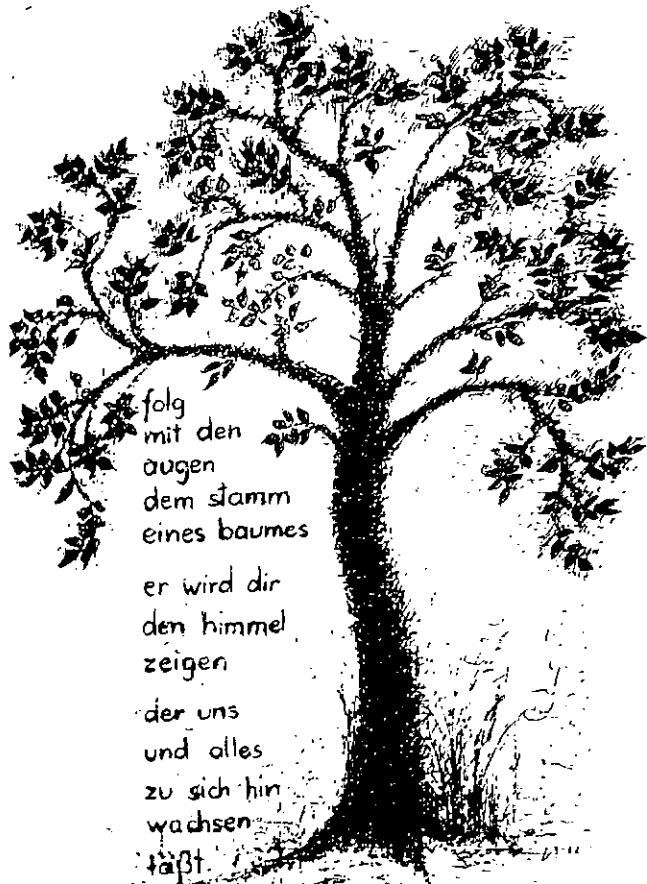 folg
mit den
augen
dem stamm
eines baumes
er wird dir
den himmel
zeigen
der uns
und alles
zu sich hin
wachsen
läßt.